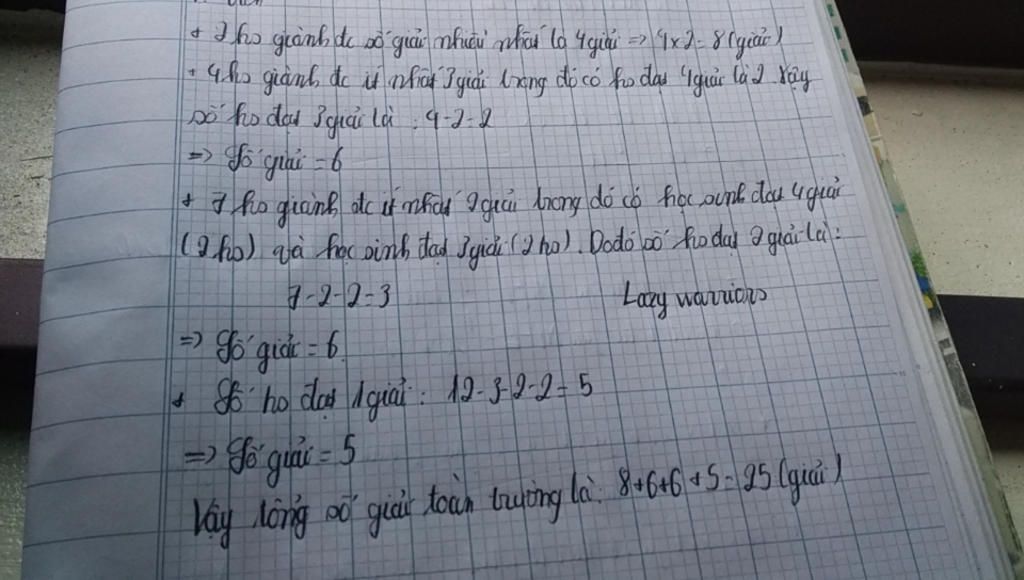 + 2 hs giành đc số giải nhiều nhất là 4 giải => 4 x 2 = 8 (giải)
+ 4 hs giành đc ít nhất 3 giải trong đó có hs đạt 4 giải là 2. Vậy
số hs đạt 3 giải là : 4 - 2 = 2
=> Số giải = 6
+ 7 hs giành đc ít nhất 2 giải trong đó có học sinh đạt 4 giải
(2 hs) và học sinh đạt 3 giải (2 hs). Do đó số hs đạt 2 giải là :
7 - 2 - 2 = 3 Lazy warriors
=> Số giải = 6
+ Số hs đạt 1 giải : 12 - 3 - 2 - 2 = 5
=> Số giải = 5
Vậy tổng số giải toàn trường là: 8+6+6+5 = 25 (giải)